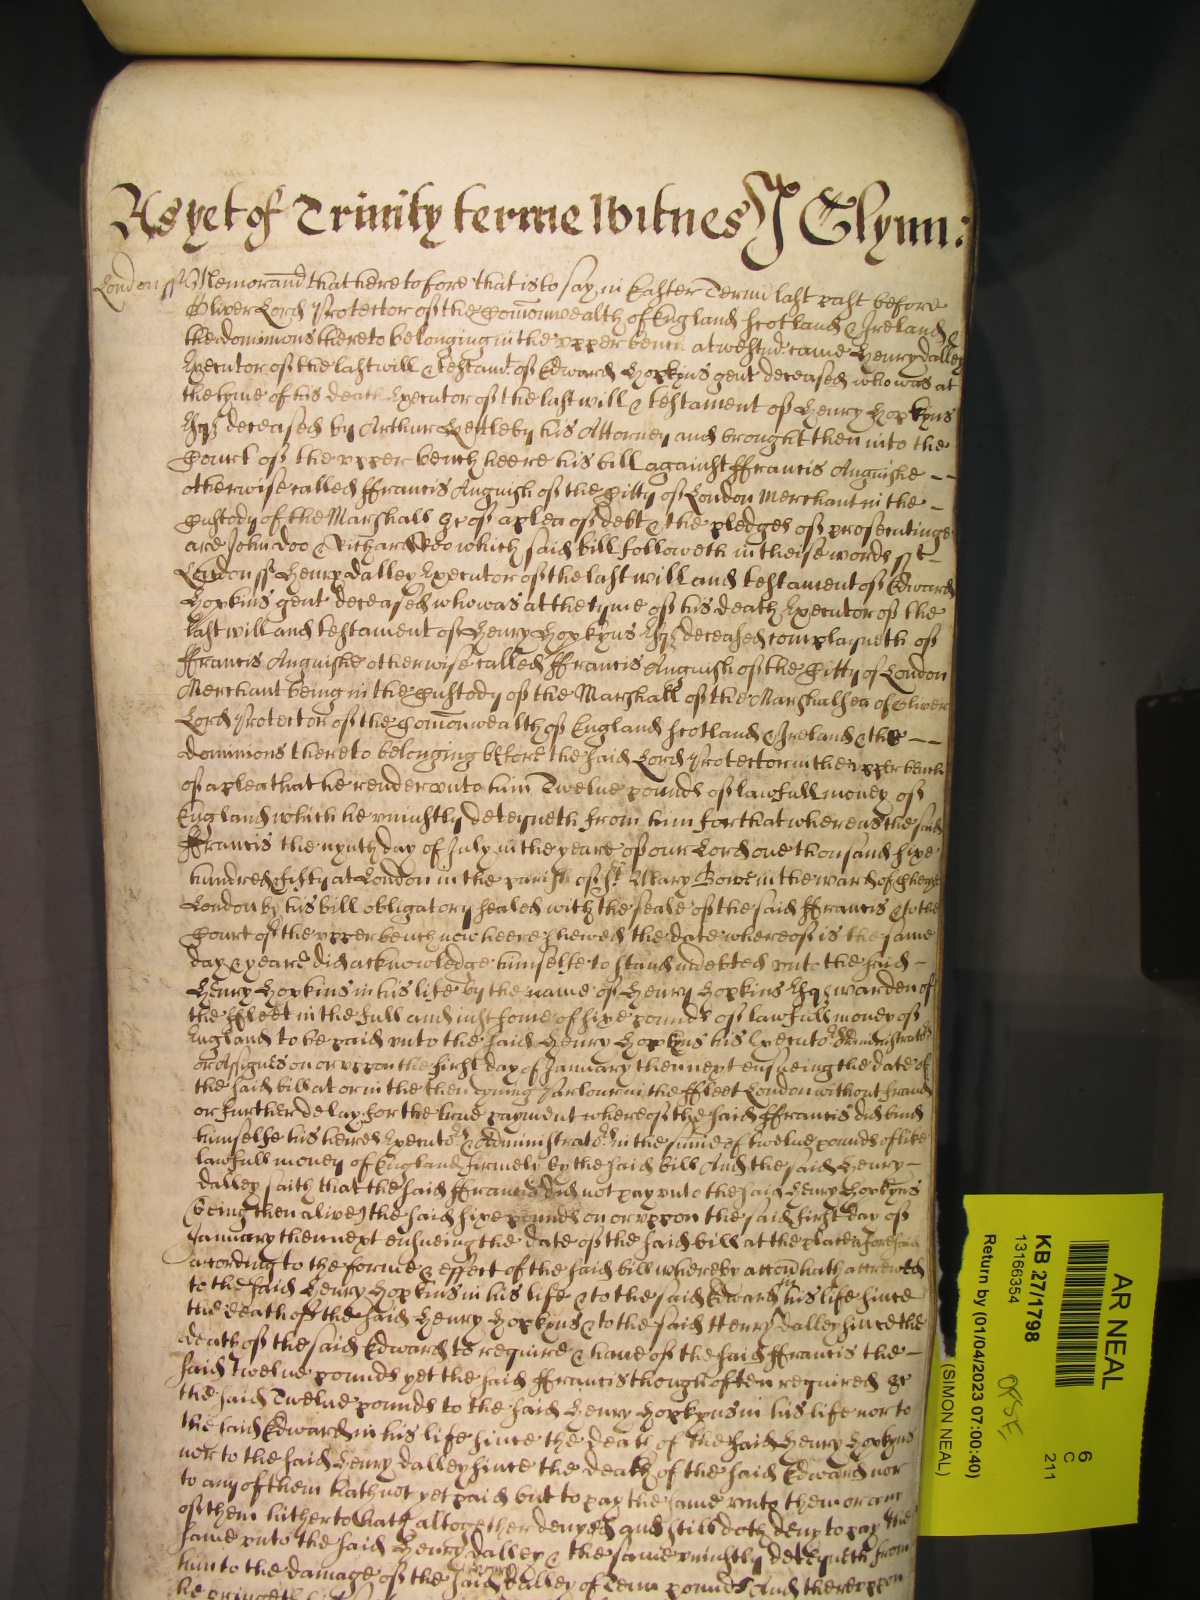 As yet of Trinity terme Witnes J Glynn:
London ss Memorand that heretofore that is to say in Easter Terme last past before
Oliver Lord Protector of the Comonwealth of England Scotland & Ireland &
the dominions thereto belonging in the upper bench at westmr came Henry Dalley
Executor of the last will & testamt of Edward Hopkyns gent deceased who was at
the tyme of his death Executor of the last will & testament of Henry Hopkyns
Esqr deceased by Arthur his Attorney and brought then into the
Court of the upper bench heere his bill against ffrancis Anguishe --
otherwise called ffrancis Anguish of the Citty of London Merchant in the -
Custody of the Marshall &c of a plea of debt & the pledges of prosecutinge
are John Doo & Richard Roo which said bill followeth in theise words ss -
London ss Henry Dalley Executor of the last will and testament of Edward
Hopkins gent deceased who was at the tyme of his death Executor of the
last will and testament of Henry Hopkyns Esqr deceased complayneth of
ffrancis Anguishe otherwise called ffrancis Anguish of the Citty of London
Merchant being in the Custody of the Marshall of the Marshalsea of Oliver
Lord Protector of the Comonwealth of England Scotland & Ireland & the --
dominions thereto belonging before the said Lord Protector in the upper bench
of a plea that he render unto him Twelve pounds of lawfull money of
England which he uniustly deteyneth from him for that whereas the said
ffrancis the nynth day of July in the yeare of our Lord one thousand sixe
hundred fifty at London in the parish of St Mary Bowe in the ward of Cheape
London by his bill obligatory sealed with the seale of the said ffrancis & to the
Court of the upper bench now heere shewed the date whereof is the same
day & yeare did acknowledge himselfe to stand indebted unto the said -
Henry Hopkins in his life by the name of Henry Hopkins Esqr warden of
the ffleet in the full and iust some of sixe pounds of lawfull money of
England to be paid unto the said Henry Hopkyns his Executors Administrators
or Assignes on or uppon the first day of January then next ensueing the date of
the said bill at or in the then Parlour in the ffleet London without fraud
or further delay for the true payment whereof the said ffrancis did bind
himselfe his heires Executors & Administrators in the summe of twelve pounds of like
lawfull money of England firmely by the said bill And the said Henry -
Dalley saith that the said ffrancis did not pay unto the said Henry Hopkyns
(being then alive) the said sixe pounds on or uppon the said first day of
January then next ensueing the date of the said bill at the place aforesaid
according to the forme & effect of the said bill whereby accon hath accrewed
to the said Henry Hopkins in his life & to the said Edward in his life since
the death of the said Henry Hopkyns & to the said Henry Dalley since the
death of the said Edward to require & have of the said ffrancis the -
said Twelve pounds yet the said ffrancis though often required &c
the said Twelve pounds to the said Henry Hopkyns in his life nor to
the said Edward in his life since the death of the said Henry Hopkyns
nor to the said Henry Dalley since the death of the said Edward nor
to any of them hath not yet paid but to pay the same unto them or any
of them hitherto hath altogether denyed and still doth deny to pay the
same unto the said Henry Dalley & the same uniustly deteyneth from
him to the damage of the said Henry Dalley of Tenn pounds And thereuppon
he bringeth
AR NEAL
KB 27/1798
13166354
Return by (01/04/2023 07:00:40)
(SIMON NEAL)
6
C
211